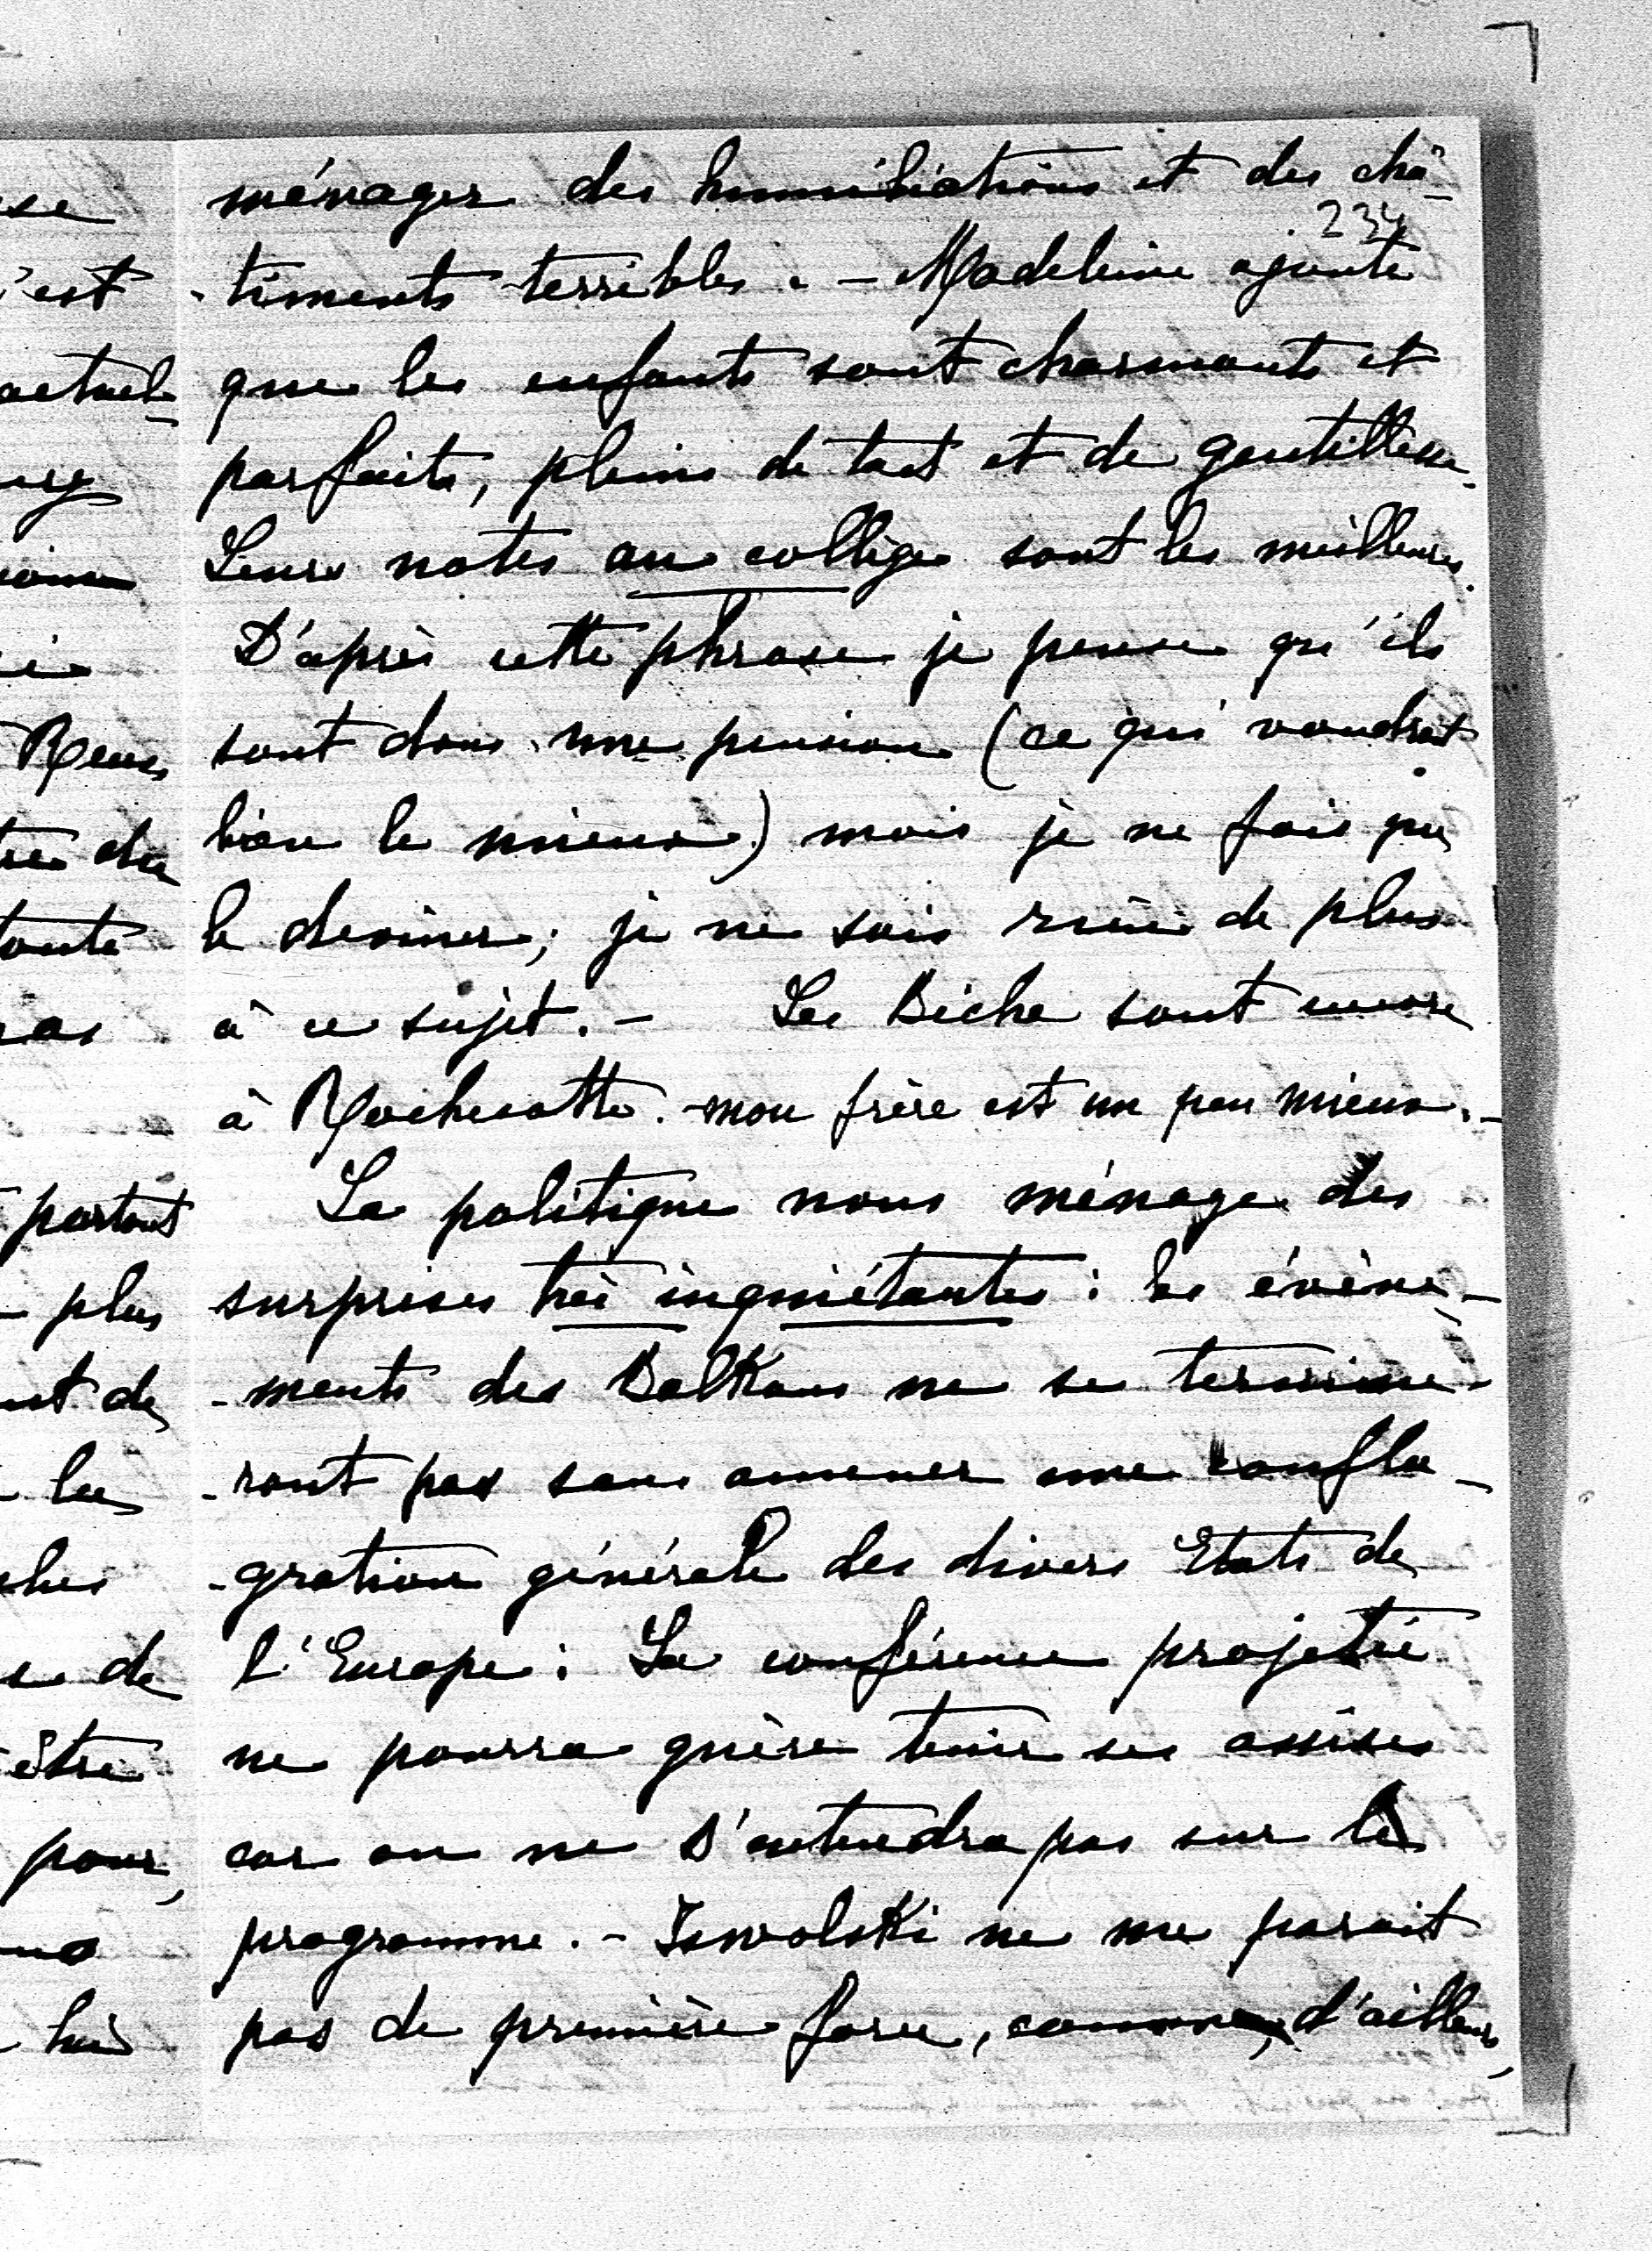 ménager des humiliations et des châ-
234
-timents terribles. - Madeleine ajoute
que les enfants sont charmants et
parfaits, pleins de tact et de gentillesse.
Leurs notes au collège sont les meilleures.
D'après cette phrase je pense qu'ils
sont dans une pension (ce qui vaudrait
bien le mieux) mais je ne fais que
le deviner; je ne sais rien de plus
à ce sujet. - Les Biche sont encore
à Rochecotte. mon frère est un peu mieux. -
La politique nous ménage des
surprises très inquiétantes : les évène-
-ments des Balkans ne se termine-
-ront pas sans amener une confla-
-gration générale des divers Etats de
l'Europe : La conférence projetée
ne pourra guère tenir ses assises
car on ne s'entendra pas sur le
programme. - Iswolski ne me parait
pas de première force, comme, d'ailleurs,
se
'est
actuel-
Reuss
toute
partout
plus
être
pour,
lui